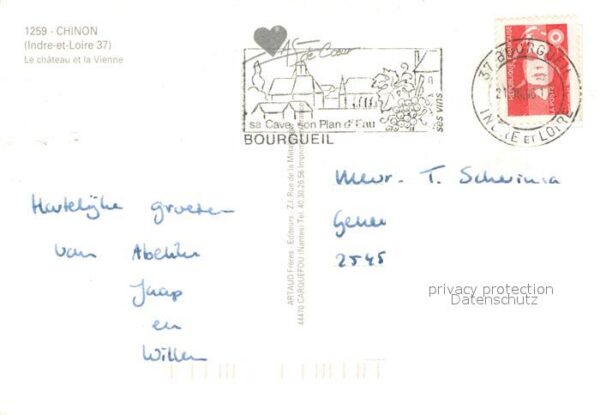 1259 - CHINON
(Indre-et-Loire 37)
Le château et la Vienne
AS de Cœur
sa Cave, son Plan d'Eau
ses vins
BOURGUEIL
37 BOURGUEIL
INDRE ET LOIRE
LA POSTE
Hartelijke groeten
van
Jaap
en
Willem
ARTAUD Frères - Editeurs - Z.I. Rue de la Métairie
44470 CARQUEFOU (Nantes) Tél. 40.30.26.56
Mevr. T. Scheima
2545
privacy protection
Datenschutz